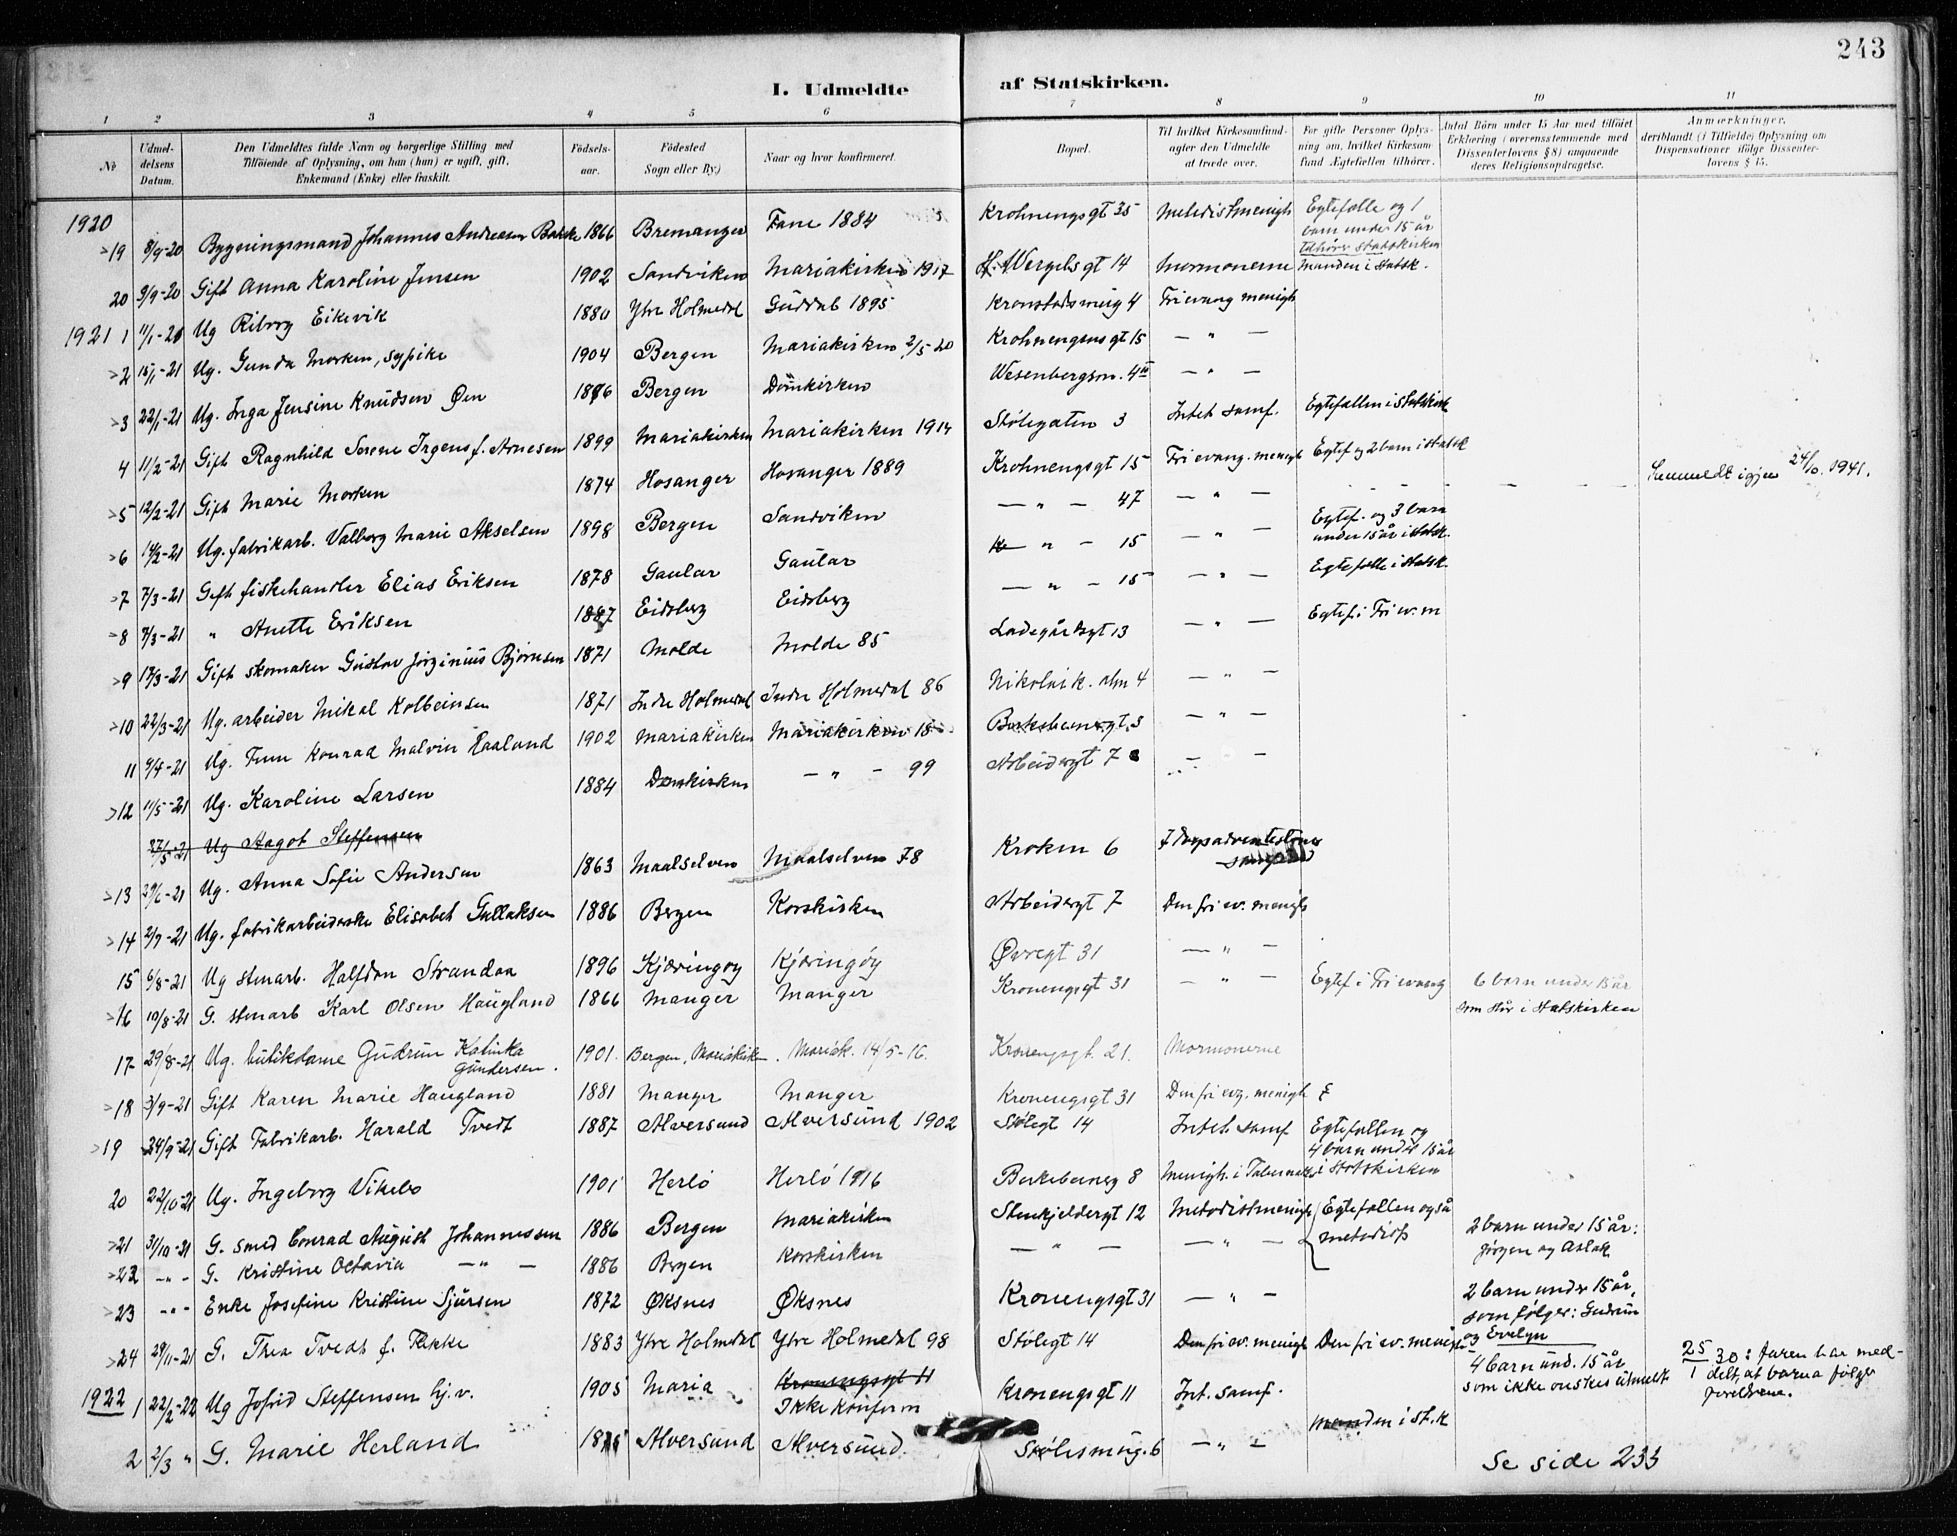 243
I. Udmeldte af Statskirken.
1 2 3 4 5 6 7 8 9 10 11
№ | Udmeldelsens Datum. | Den Udmeldtes fulde Navn og borgerlige Stilling med Tilföiende af Oplysning, om han (hun) er ugift, gift, Enkemand (Enke) eller fraskilt. | Födselsaar. | Födested Sogn eller By.) | Naar og hvor konfirmeret. | Bopæl. | Til hvilket Kirkesamfund agter den Udmeldte at træde over. | For gifte Personer Oplysning om, hvilket Kirkesamfund Ægtefællen tilhörer. | Antal Börn under 15 Aar med tilföiet Erklæring (overensstemmende med Dissenterlovens § 8) angaaende deres Religionsopdragelse. | Anmærkninger, deriblandt (i Tilfælde) Oplysning om Dispensationer ifölge Dissenterlovens § 15.
1920
19 8/9-20 Bygningsmand Johannes Andreasen Bakke 1866 Bremanger Fane 1884 Krohnengsgt 35 Metodistmenigh Egtefælle og 1 barn under 15 år tilhører statskirken
20 3/9-20 Gift Anna Karoline Jensen 1902 Sandviken Mariakirken 1917 H. Wergelsgt 14 Mormonerne Manden i Statsk.
1921 1 11/1-21 Ug Riborg Eikevik 1880 Ytre Holmedal Guddal 1895 Kronstadsmug 4 Fri evang menigh
2 15/1-21 Ug. Gunda Morken, sypike 1904 Bergen Mariakirken 2/5-20 Krohnengsgt 15 — " —
3 22/1-21 Ug. Inga Jensine Knudsen Øen 1876 Bergen Domkirken Wesenbergsm. 4 — " —
4 11/2-21 Gift Ragnhild Serene Irgens f. Arnesen 1899 Mariakirken Mariakirken 1914 Stølegaten 3 Intet samf. Egtefællen i Statskirk
5 12/2-21 Gift Marie Morken 1874 Hosanger Hosanger 1889 Krohnengsgt 15 Fri evang. menigh Egtef og 2 barn i statsk Innmeldt igjen 24/10. 1941.
6 14/2-21 Ug. fabrikarb. Valborg Marie Akselsen 1898 Bergen Sandviken — " — 47 — " —
7 7/3-21 Gift fiskehandler Elias Eriksen 1878 Gaular Gaular " — 15 — " — Egtef. og 3 barn under 15 år i statsk.
8 7/3-21 " Anette Eriksen 1887 Eidsberg Eidsberg — " — 15 — " — Egtefælle i statsk.
9 17/3-21 Gift skomaker Gustav Jørginius Bjørnsen 1871 Molde Molde 85 Ladegårdsgt 13 — " — Egtef. i Fri ev. m
10 22/3-21 Ug. arbeider Mikal Kolbeinsen 1871 Indre Holmedal Indre Holmedal 86 Nikolaik. alm 4 — " —
11 9/4-21 Ug. Konrad Malvin Haaland 1902 Mariakirken Mariakirken 18 Birkebeinergt. 3 — " —
12 11/5-21 Ug. Karoline Larsen 1884 Domkirken — " — 99 Arbeidergt 7 — —
27/5-21 Ug Aagot Steffensen
13 29/6-21 Ug. Anna Sofie Andersen 1863 Maalselven Maalselven 78 Kroken 6 7 dagsadventistenes
14 2/7-21 Ug. fabrikarbeiderske Elisabet Gullaksen 1886 Bergen Korskirken Arbeidergt 7 Den fri ev. menigh
15 6/8-21 Ug stuearb. Halfdan Strandaa 1896 Kjæringøy Kjæringøy Øvregt 31 — " —
16 10/8-21 G. stuearb Karl Olsen Haugland 1866 Manger Manger Kronengsgt 31 — " — Egtef i Fri evang 6 barn under 15 år som står i Statskirken
17 29/8-21 Ug. butikdame Gudrun Katinka Gundersen. 1901. Bergen, Mariakirken. Mariak. 14/5-16. Kronengsgt. 21. Mormonerne
18 3/9-21 Gift Karen Marie Haugland 1881 Manger Manger Kronengsgt 31 Den fri evg. menigh
19 24/9-21 Gift Fabrikarb. Harald Tvedt 1887 Alversund Alversund 1902 Stølegt 14 Intet samf Egtefællen og 4 barn under 15 år i Statskirken
20 22/10-21 Ug. Ingeborg Vikebø 1901 Herlø Herlø 1916 Berkebeinerg 8 Menigh. i Tabernaklet
21 31/10-21 G. smed Conrad August Johannessen 1886 Bergen Mariakirken Stenkjeldergt 12 Metodistmenigh Egtefællen også metodist 2 barn under 15 år: Jørgen og Aslak
22 — " — G. Kristine Octavia — " — 1886 Bergen Korskirken — " — — " —
23 — " — Enke Josefine Kristine Sjursen 1872 Øksnes Øksnes Kronengsgt 31 — " — 2 barn under 15 år, som følger: Gudrun og Evelyn
24 29/11-21 G. Thea Tvedt f. Flekke 1883 Ytre Holmedal Ytre Holmedal 98 Stølegt 14 Den fri ev. menigh Den fri ev. menigh 4 barn und. 15 år som ikke ønskes utmeldt 25/1 30: faren har meddelt, at barna følger foreldrene.
1922 1 22/2-22 Ug Jofrid Steffensen hj. v. 1905 Maria Kronengsgt 11 Ikke konform Kronengsgt 11 Int. samf.
2 2/3 " G. Marie Herland 1875 Alversund Alversund. Stølesmug. 6 — " — manden i st.k
Se side 233